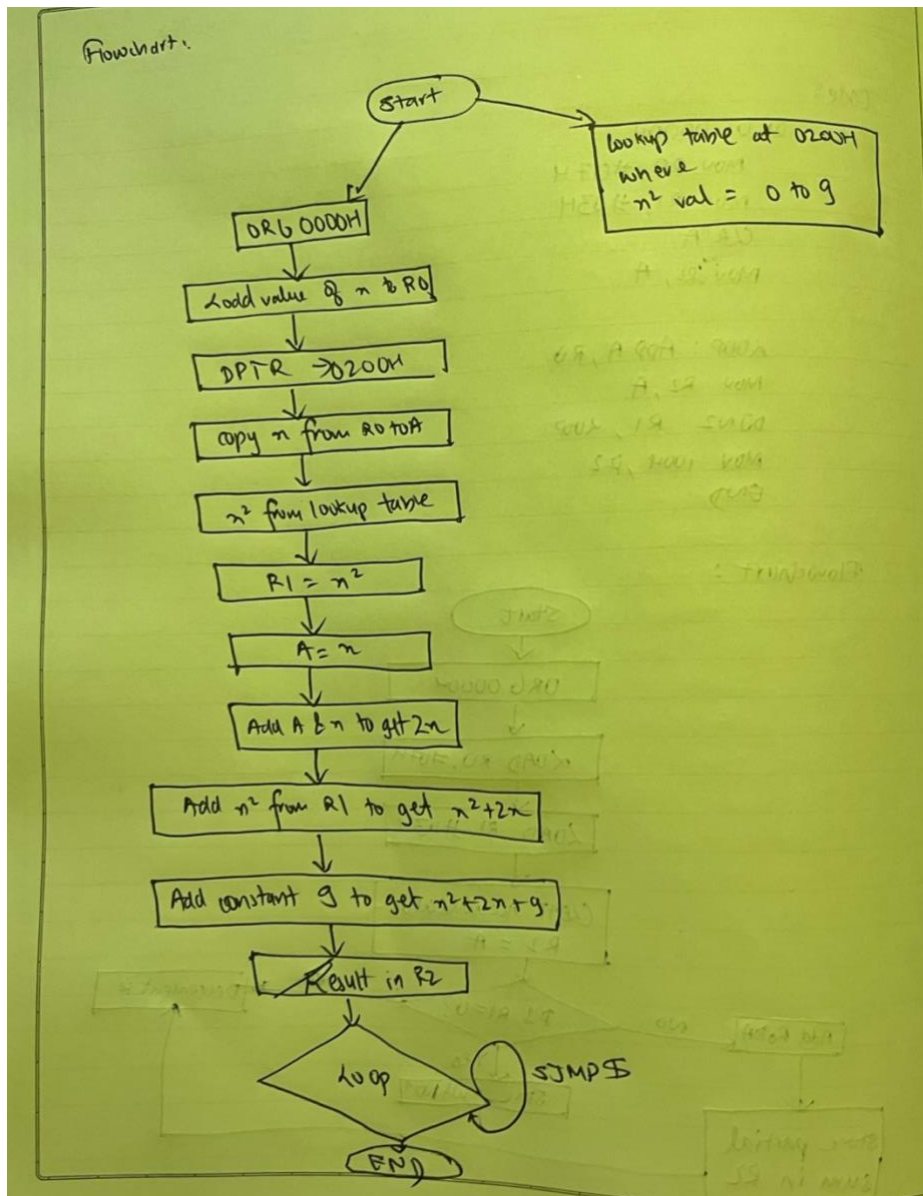 Flowchart:
Start
lookup table at 0200H
where
n² val = 0 to 9
ORG 0000H
Load value of n to R0
DPTR → 0200H
copy n from R0 to A
n² from lookup table
R1 = n²
A = n
Add A & n to get 2n
Add n² from R1 to get n²+2n
Add constant 9 to get n²+2n+9
Result in R2
Loop
SJMP $
END